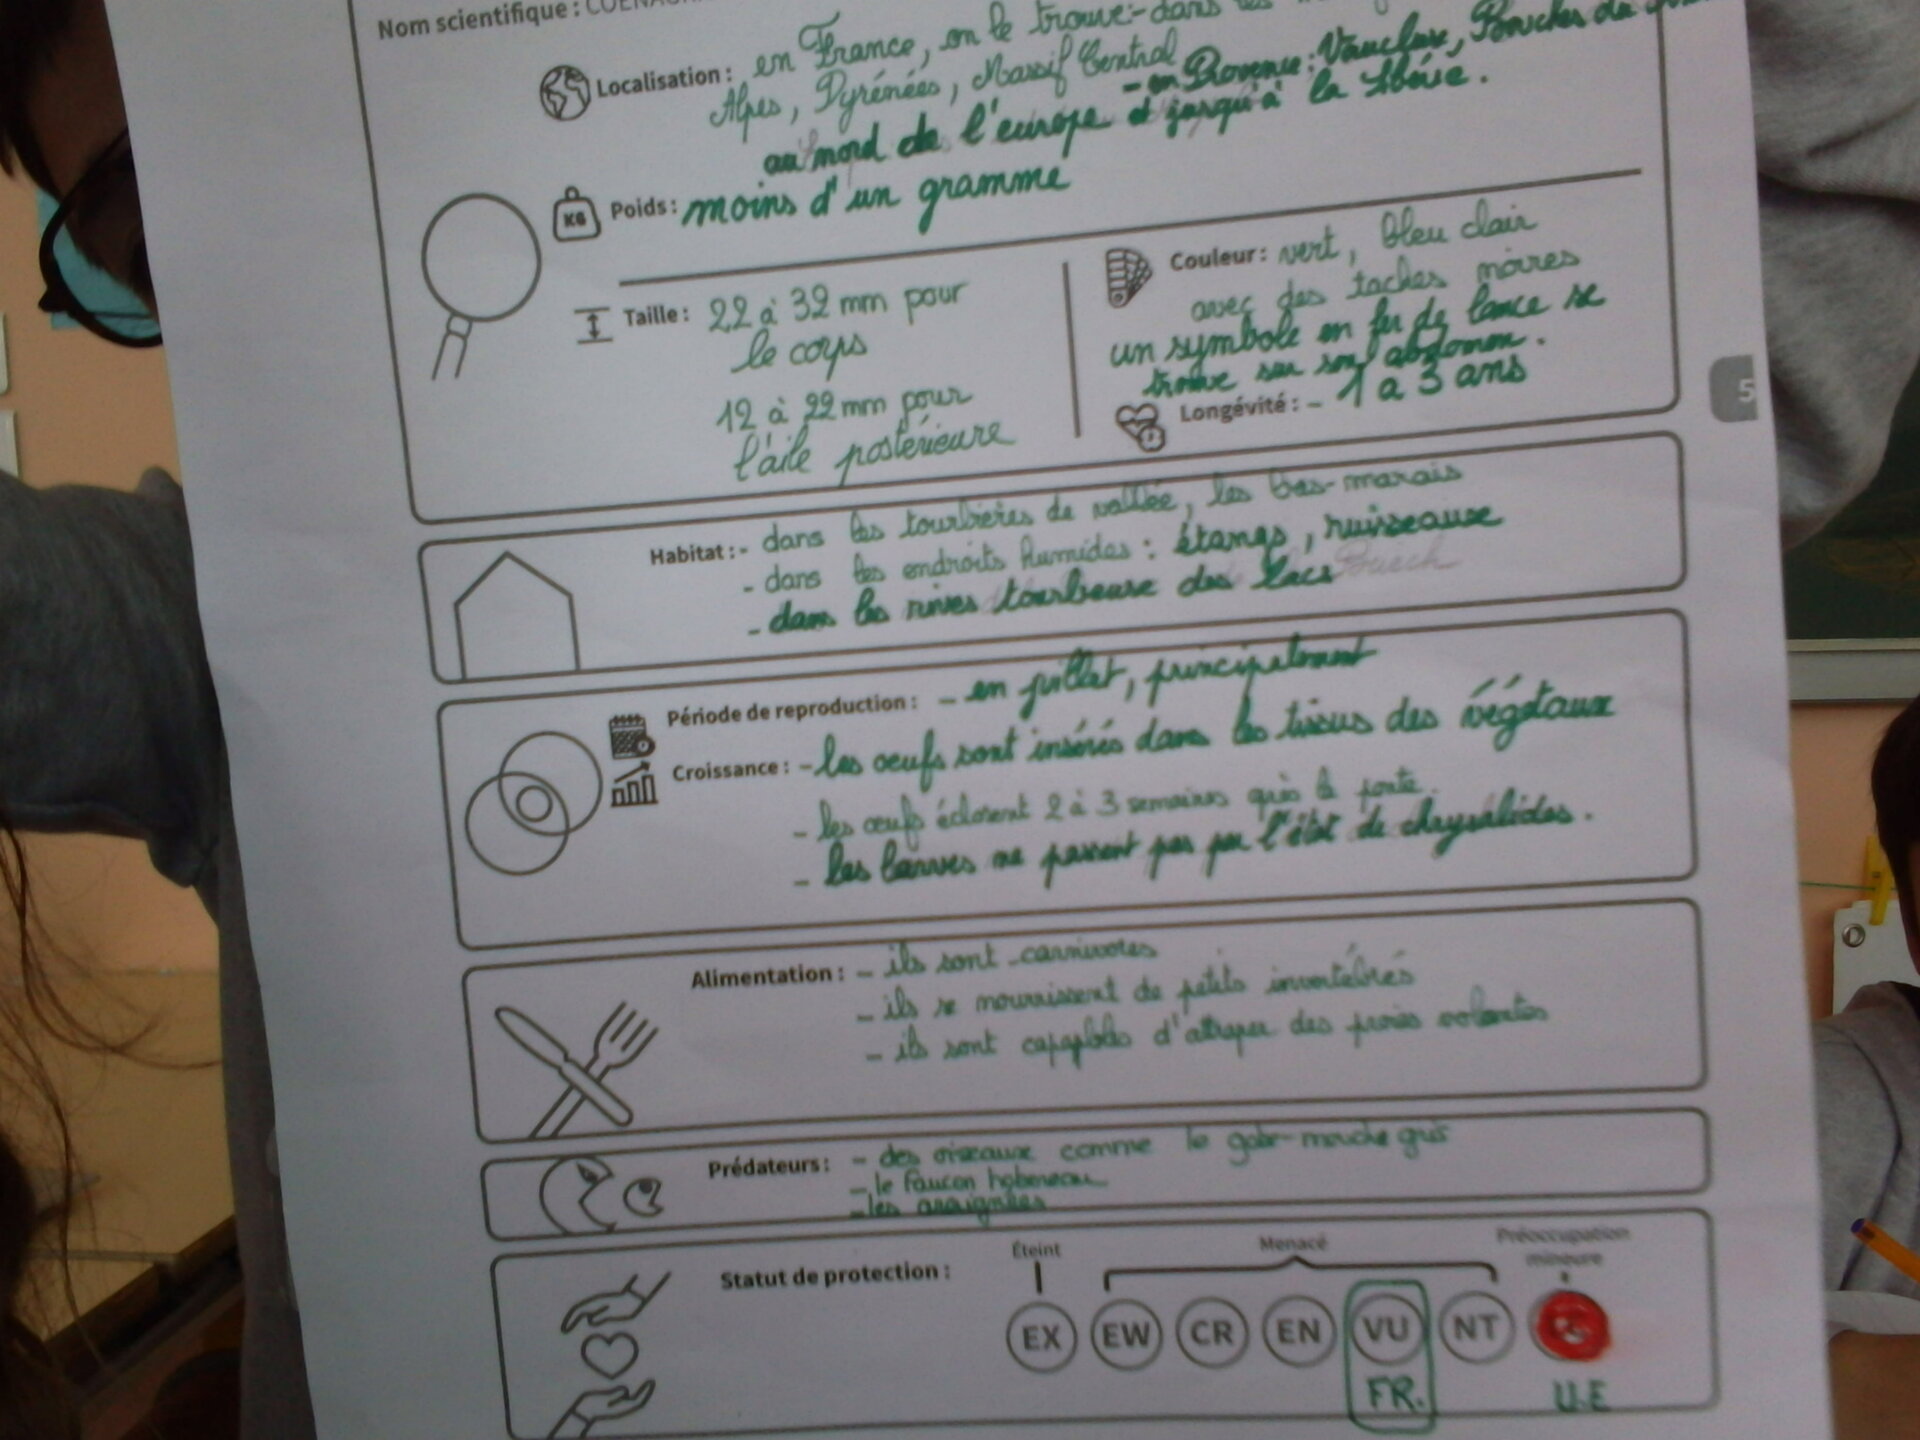 Nom scientifique :
Localisation : en France, on le trouve - dans les
Alpes, Pyrénées, Massif Central
- en Provence : Vaucluse, Bouches du
au nord de l'europe et jusqu'à la Sibérie.
Poids : moins d'un gramme
Taille : 22 à 32 mm pour
le corps
12 à 22 mm pour
l'aile postérieure
Couleur : vert, bleu clair
avec des taches noires
un symbole en fer de lance se
trouve sur son abdomen.
Longévité : - 1 a 3 ans
5
Habitat : - dans les tourbières de vallée, les bas-marais
- dans les endroits humides : étangs, ruisseause
- dans les rives tourbeuse des lacs
Période de reproduction : - en juillet, principalement
Croissance : - les oeufs sont insérés dans les tissus des végétaux
- les œufs éclosent 2 à 3 semaines après la ponte.
- les larves ne passent pas par l'état de chrysalides.
Alimentation : - ils sont carnivores
- ils se nourrissent de petits invertébrés
- ils sont capapbles d'attraper des proies volantes
Prédateurs : - des oiseaux comme le gobe-mouche gris
- le faucon hobereau
- les araignées
Statut de protection :
Éteint
Menacé
Préoccupation
mineure
EX EW CR EN VU NT
FR. U.E